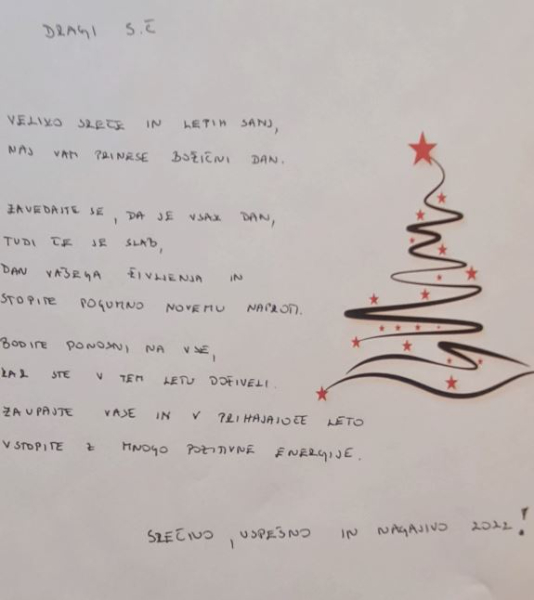 DRAGI S.Č
VELIKO SREČE IN LEPIH SANJ,
NAJ VAM PRINESE BOŽIČNI DAN.
ZAVEDAJTE SE, DA JE VSAK DAN,
TUDI ČE JE SLAB,
DAN VAŠEGA ŽIVLJENJA IN
STOPITE POGUMNO NOVEMU NAPROTI.
BODITE PONOSNI NA VSE,
KAR STE V TEM LETU DOŽIVELI.
ZAUPAJTE VASE IN V PRIHAJAJOČE LETO
VSTOPITE Z MNOGO POZITIVNE ENERGIJE.
SREČNO, USPEŠNO IN NAGAJIVO 2022!